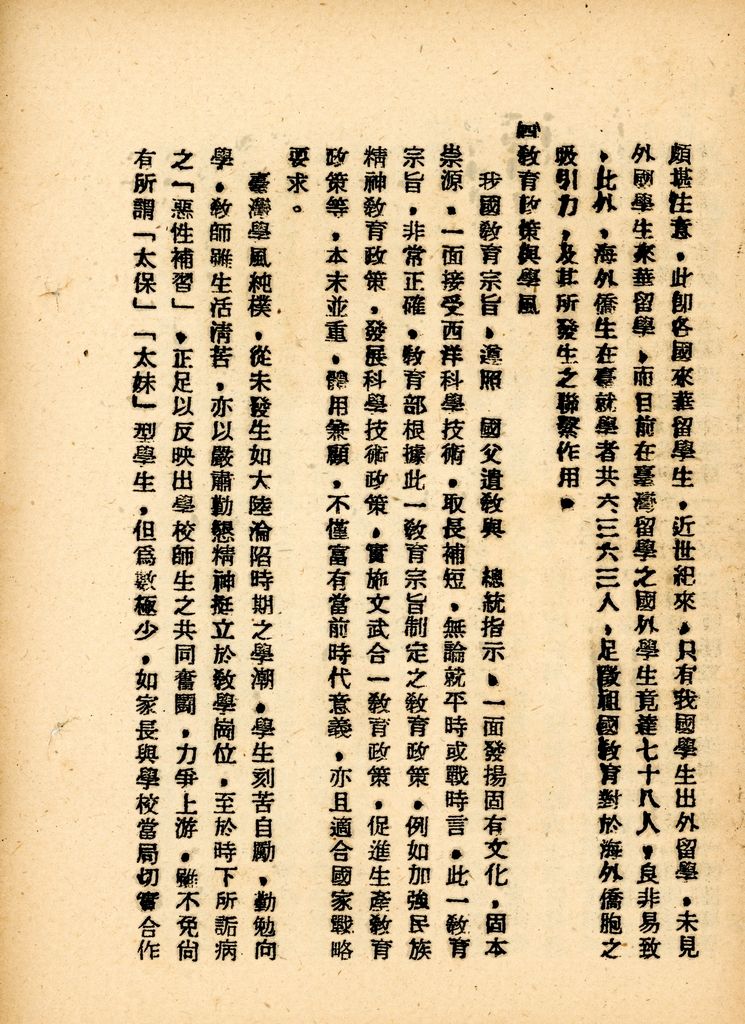 頗堪注意，此即各國來華留學生，近世紀來，只有我國學生出外留學，未見
外國學生來華留學，而目前在臺灣留學之國外學生竟達七十八人，良非易致
，此外，海外僑生在臺就學者共六、三六三人，足徵祖國敎育對於海外僑胞之
吸引力，及其所發生之聯繫作用。
四敎育政策與學風
我國敎育宗旨，遵照　國父遺敎與　總統指示，一面發揚固有文化，固本
崇源，一面接受西洋科學技術，取長補短，無論就平時或戰時言，此一敎育
宗旨，非常正確，敎育部根據此一敎育宗旨制定之敎育政策，例如加強民族
精神敎育政策，發展科學技術政策，實施文武合一敎育政策，促進生產敎育
政策等，本末並重，體用兼顧，不僅富有當前時代意義，亦且適合國家戰略
要求。
臺灣學風純樸，從未發生如大陸淪陷時期之學潮，學生刻苦自勵，勤勉向
學，敎師雖生活清苦，亦以嚴肅勤懇精神挺立於敎學崗位，至於時下所詬病
之「惡性補習」，正足以反映出學校師生之共同奮鬪，力爭上游，雖不免尙
有所謂「太保」「太妹」型學生，但爲數極少，如家長與學校當局切實合作